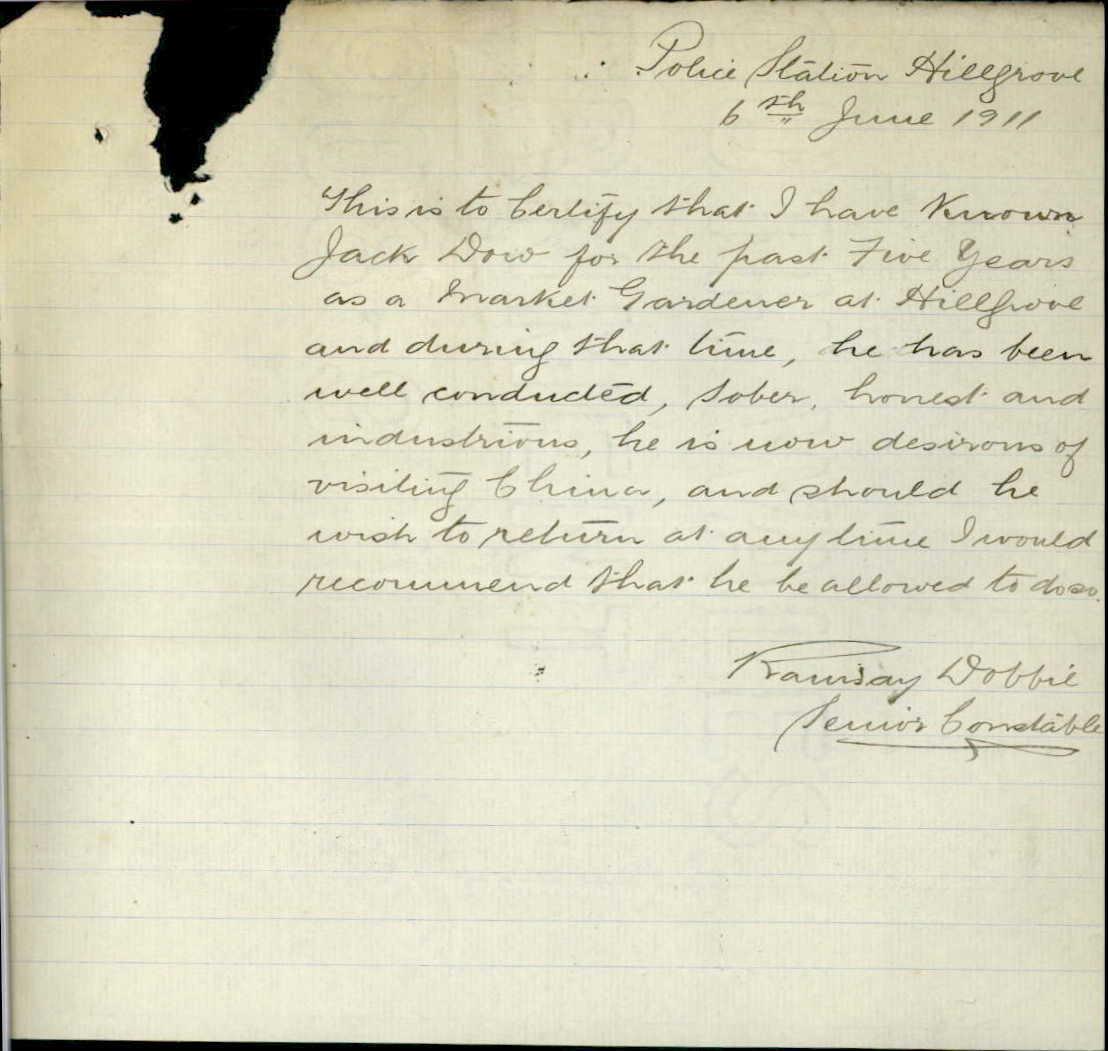 Police Station Hillgrove
6th June 1911
This is to Certify that I have Known
Jack Dow for the past Five Years
as a Market Gardener at Hillgrove
and during that time, he has been
well conducted, sober, honest and
industrious, he is now desirous of
visiting China, and should he
wish to return at any time I would
recommend that he be allowed to do so.
Ramsay Dobbie
Senior Constable